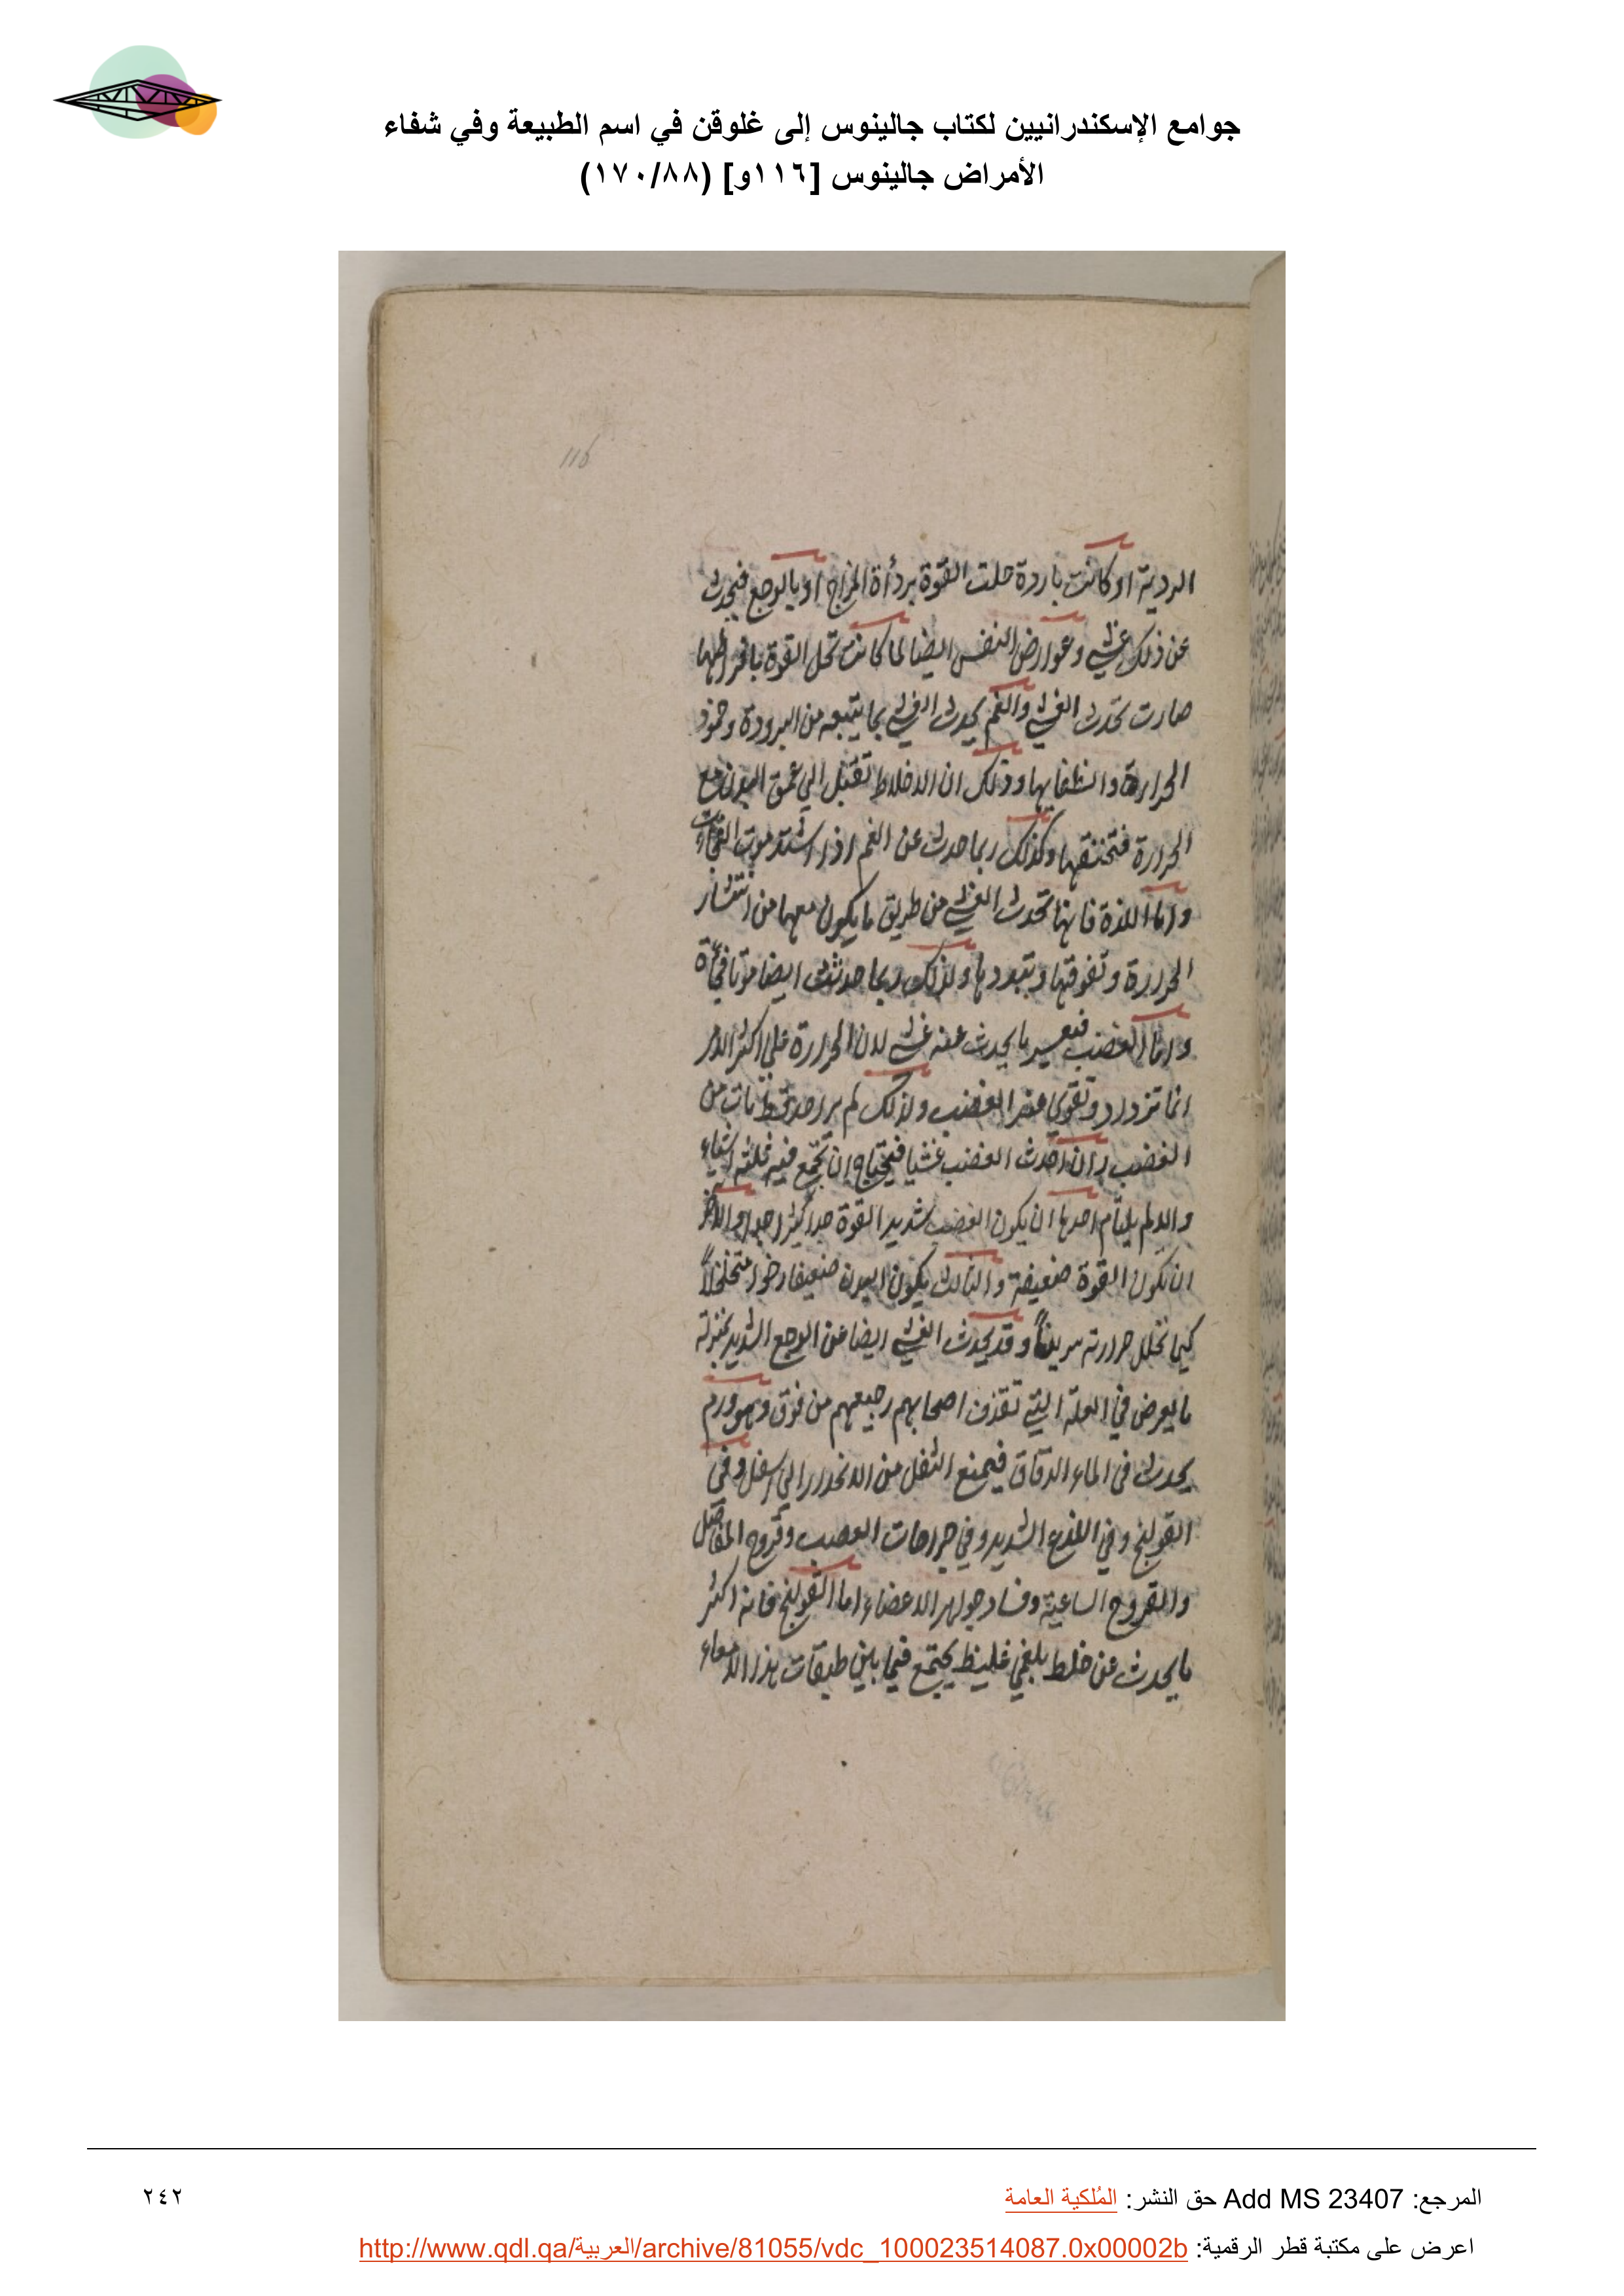 جوامع الإسكندرانيين لكتاب جالينوس إلى غلوقن في اسم الطبيعة وفي شفاء
الأمراض جالينوس [١١٦و] (١٧٠/٨٨)
116
الردية او كانت باردة حلت القوة بردأة المزاج او بالوجع فيحدث
عن ذلك غشي وعوارض النفس ايضا لما كانت تحل القوة بافراطها
صارت تحدث الغشي والغم يحدث الغشي بما يتبعه من البرودة وخمود
الحرارة وانطفايها وذلك ان الاخلاط تقبل الي عمق البدن مع
الحرارة فتخنقها وكذلك ربما حدث عن الغم اذا اشتد موت الفجاءة
واما اللذة فانها تحدث الغشي من طريق ما يكون معها من انتشار
الحرارة وتفرقها وتبددها ولذلك ربما حدثت ايضا موتا فجأة
واما الغضب فبعسر ما يحدث عنه غشي لان الحرارة علي اكثر الامر
انما تزداد وتقوي عند الغضب ولذلك لم نر احدا قط مات من
الغضب وان احدث الغضب غشيا فيحتاج ان تجتمع فيه ثلثة اشياء
والا لم يلتأم احدها ان يكون الغضب شديد القوة جدا كثيرا جدا والاخر
ان تكون القوة ضعيفة والثالث يكون البدن ضعيفا رخوا متخلخلاً
كيما تحلل حرارته سريعاً وقد يحدث الغشي ايضا عن الوجع الشديد بمنزلة
ما يعرض في العلة التي تقذف اصحابهم رجيعهم من فوق وهو ورم
يحدث في الماء الدقاق فيمنع الثفل من الانحدار الي اسفل وفي
القولنج وفي اللذع الشديد وفي جراحات العصب وقروح المفاصل
والقروح الساعية وفساد جواهر الاعضاء اما القولنج فانه اكثر
ما يحدث عن خلط بلغمي غليظ يجتمع فيما بين طبقات هذا الامعاء
المرجع: Add MS 23407 حق النشر: المُلكية العامة
٢٤٢
اعرض على مكتبة قطر الرقمية: http://www.qdl.qa/العربية/archive/81055/vdc_100023514087.0x00002b